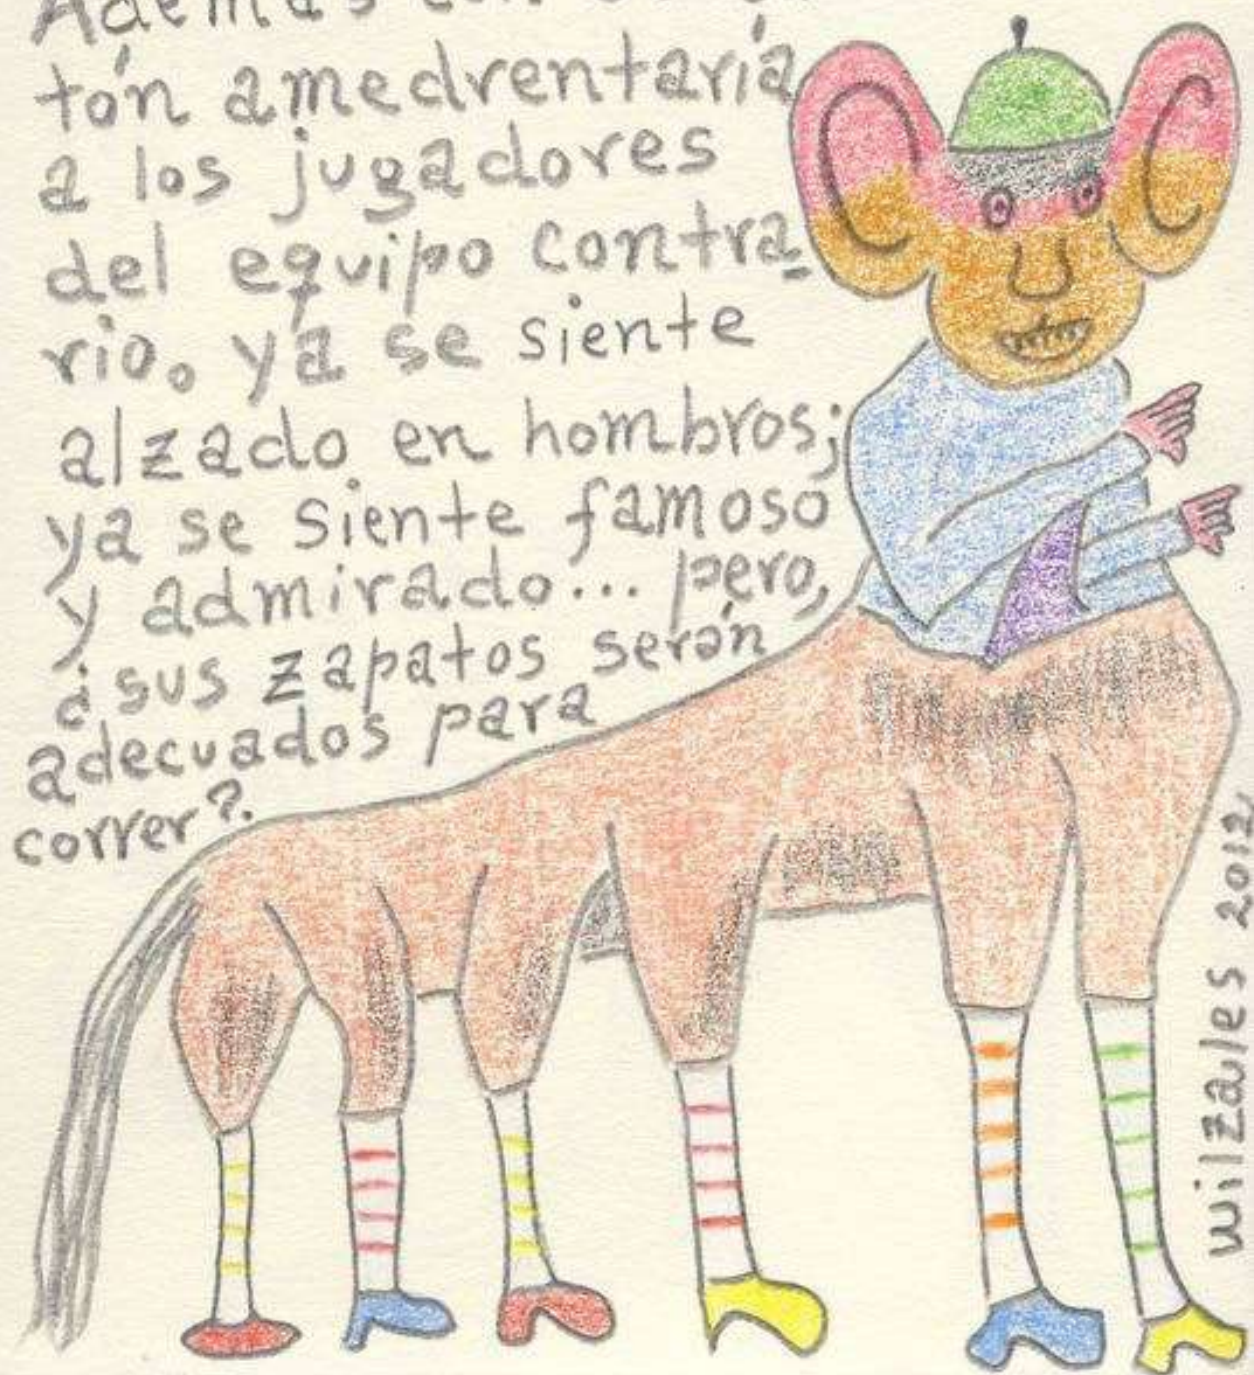 Además con
tón amedrentaría
a los jugadores
del equipo contra-
rio. ya se siente
alzado en hombros;
ya se siente famoso
y admirado... pero,
¿sus zapatos serán
adecuados para
correr?
wilzales 2012